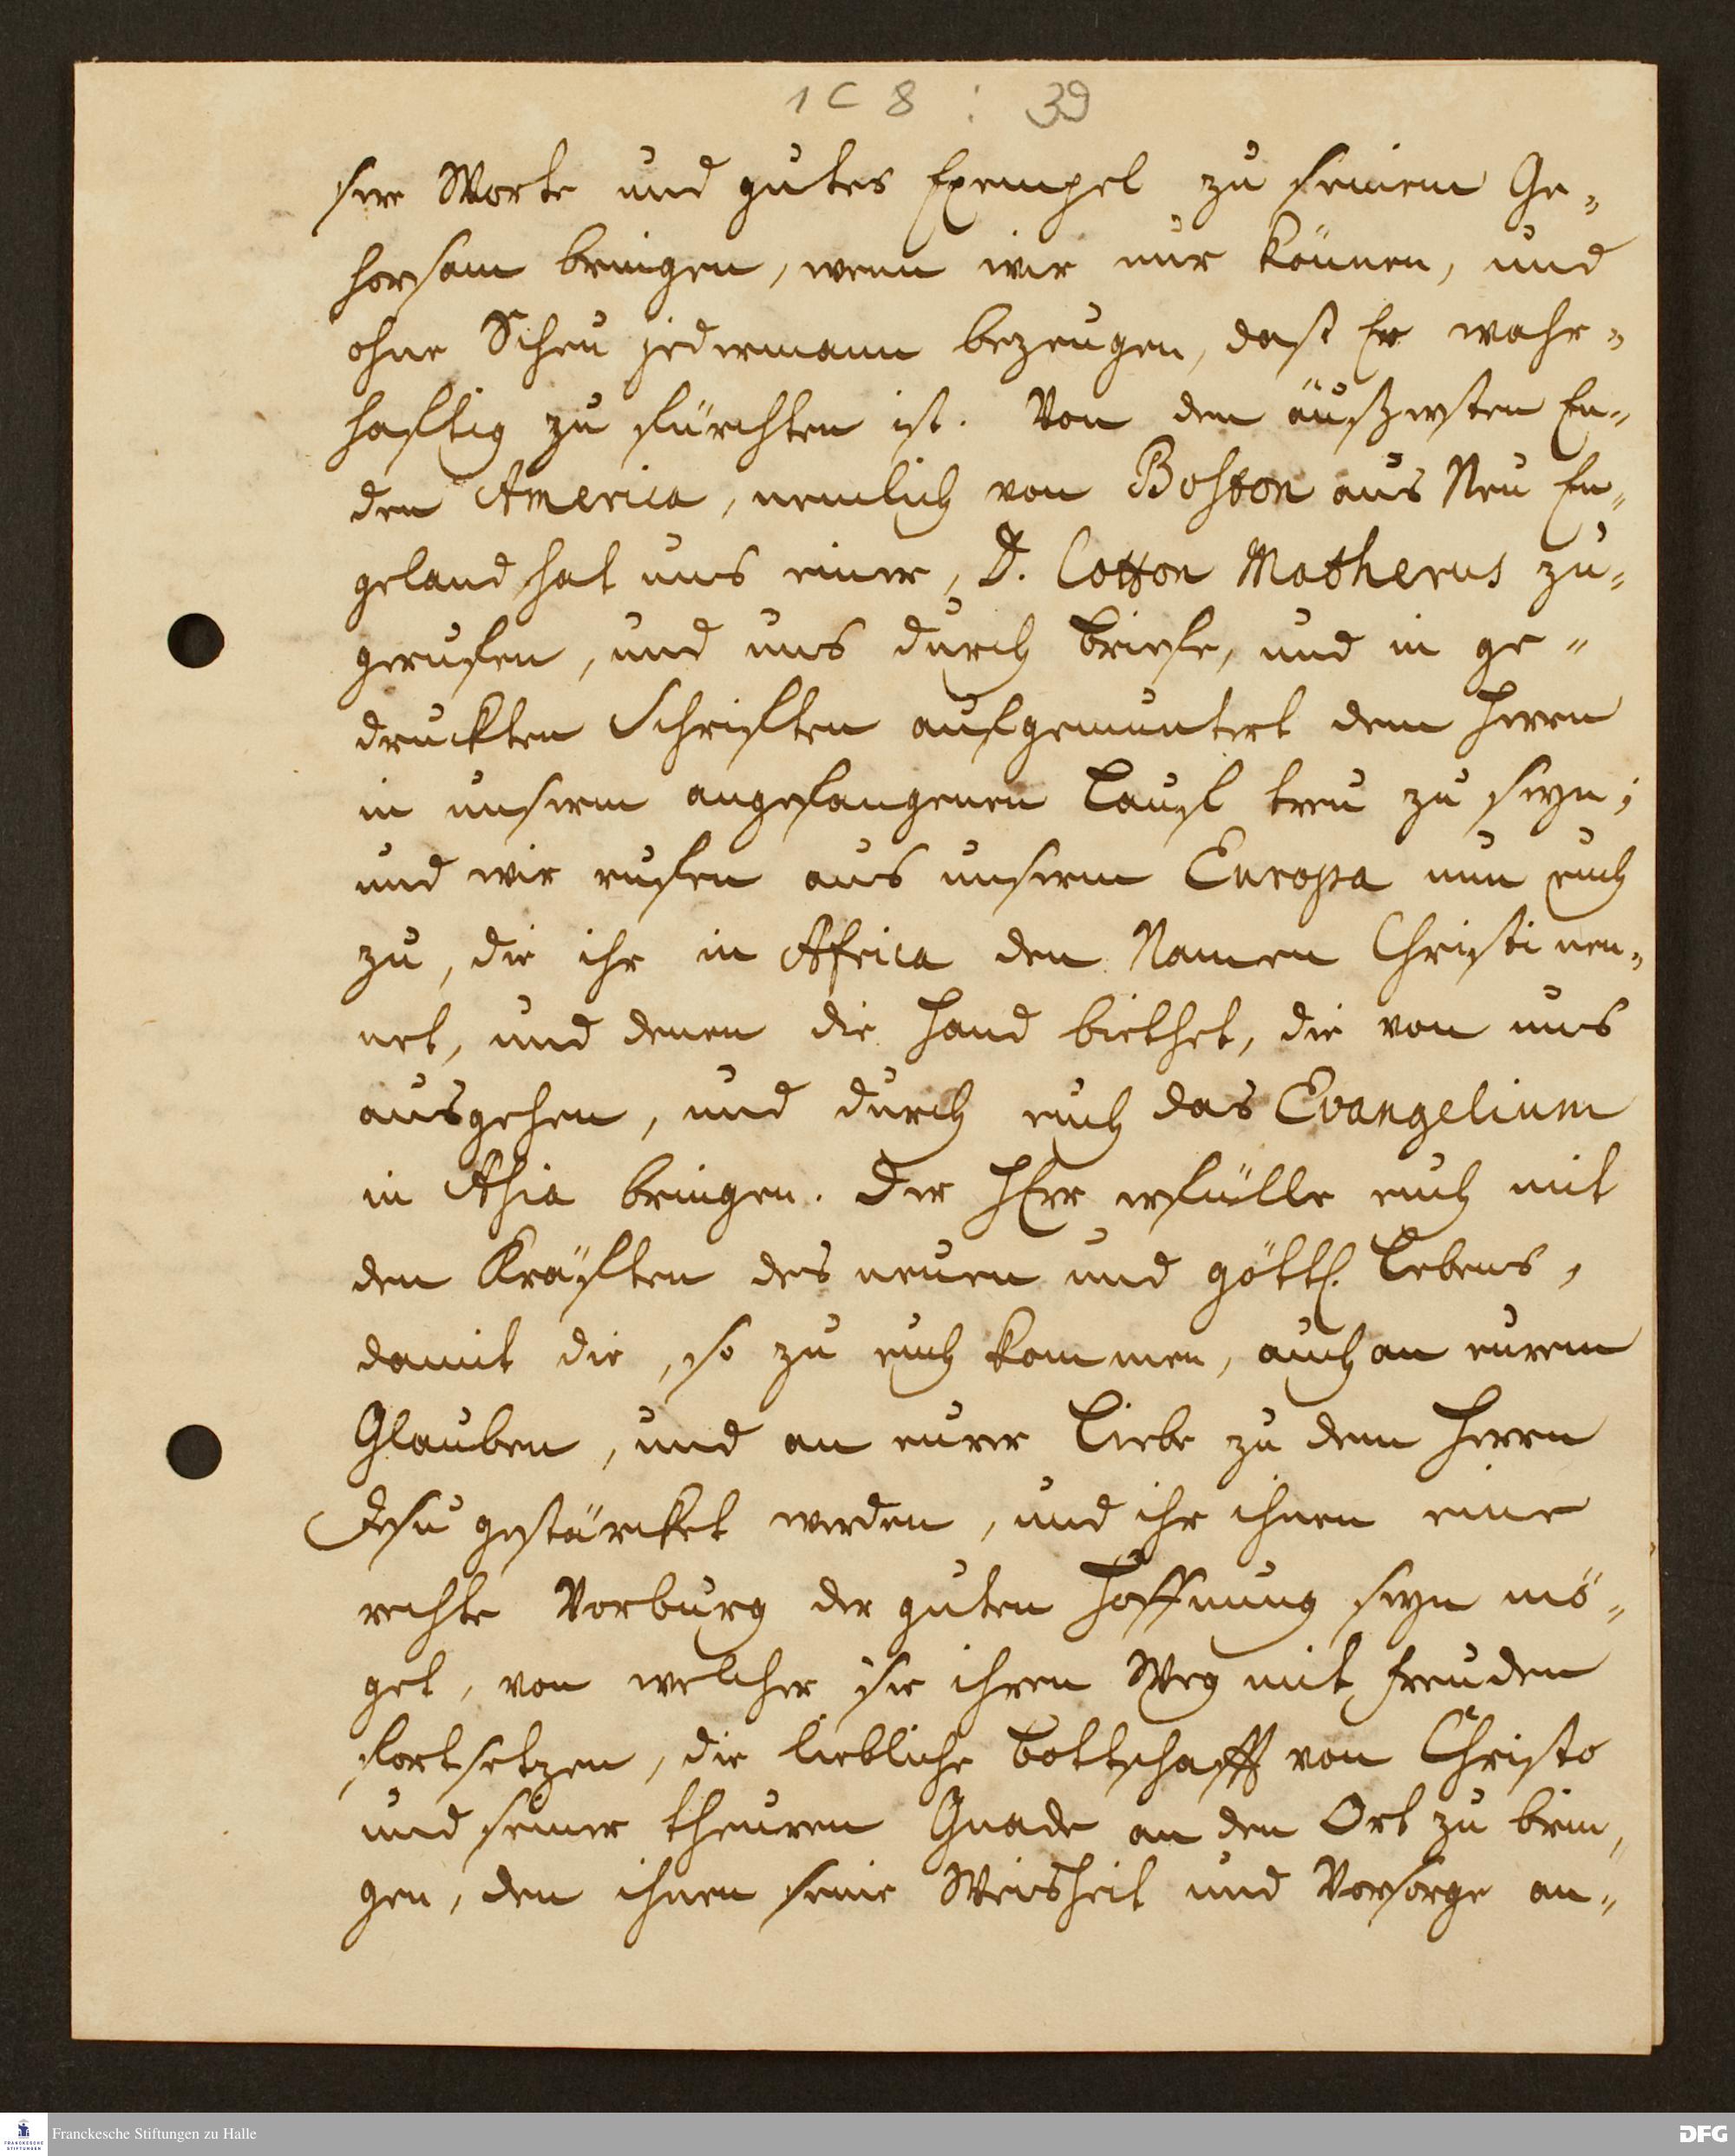 1 C 8 : 39
sere Worte und gutes Exempel zu seinem Ge¬
horsam bringen, wenn wir nur können, und
ohne Scheu jedermann bezeugen, dast Er wahr¬
hafftig zu fürchten ist. Von den äußersten En¬
den America, nemlich von Boston aus Neu En¬
geland hat uns einer, D. Cotton Matherus zu¬
geruffen, und uns durch Briefe, und in ge¬
druckten Schrifften aufgemuntert dem Herrn
in unserm angefangenen Lauff treu zu seyn;
und wir ruffen aus unserm Europa nun euch
zu, die ihr in Africa den Namen Christi nen¬
net, und denen die Hand biethet, die von uns
ausgehen, und durch euch das Evangelium
in Asia bringen. Der HErr erfülle euch mit
den Kräfften des neuen und göttl. Lebens,
damit die, so zu euch kommen, auch an eurem
Glauben, und an eurer Liebe zu dem Herrn
Jesu gestärcket werden, und ihr ihnen eine
rechte Vorburg der guten Hoffnung seyn mö¬
get, von welcher sie ihren Weg mit Freuden
fortsetzen, die liebliche Bottschafft von Christo
und seiner theuren Gnade an den Ort zu brin¬
gen, den ihnen seine Weisheit und Vorsorge an¬
Franckesche Stiftungen zu Halle
FRANCKESCHE STIFTUNGEN
DFG